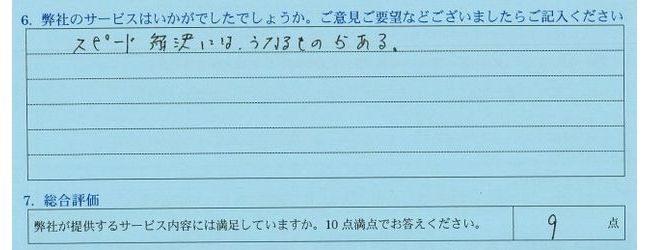 6. 弊社のサービスはいかがでしたでしょうか。ご意見ご要望などございましたらご記入ください
スピード解決には、うなるものがある。
7. 総合評価
弊社が提供するサービス内容には満足していますか。10点満点でお答えください。 9 点